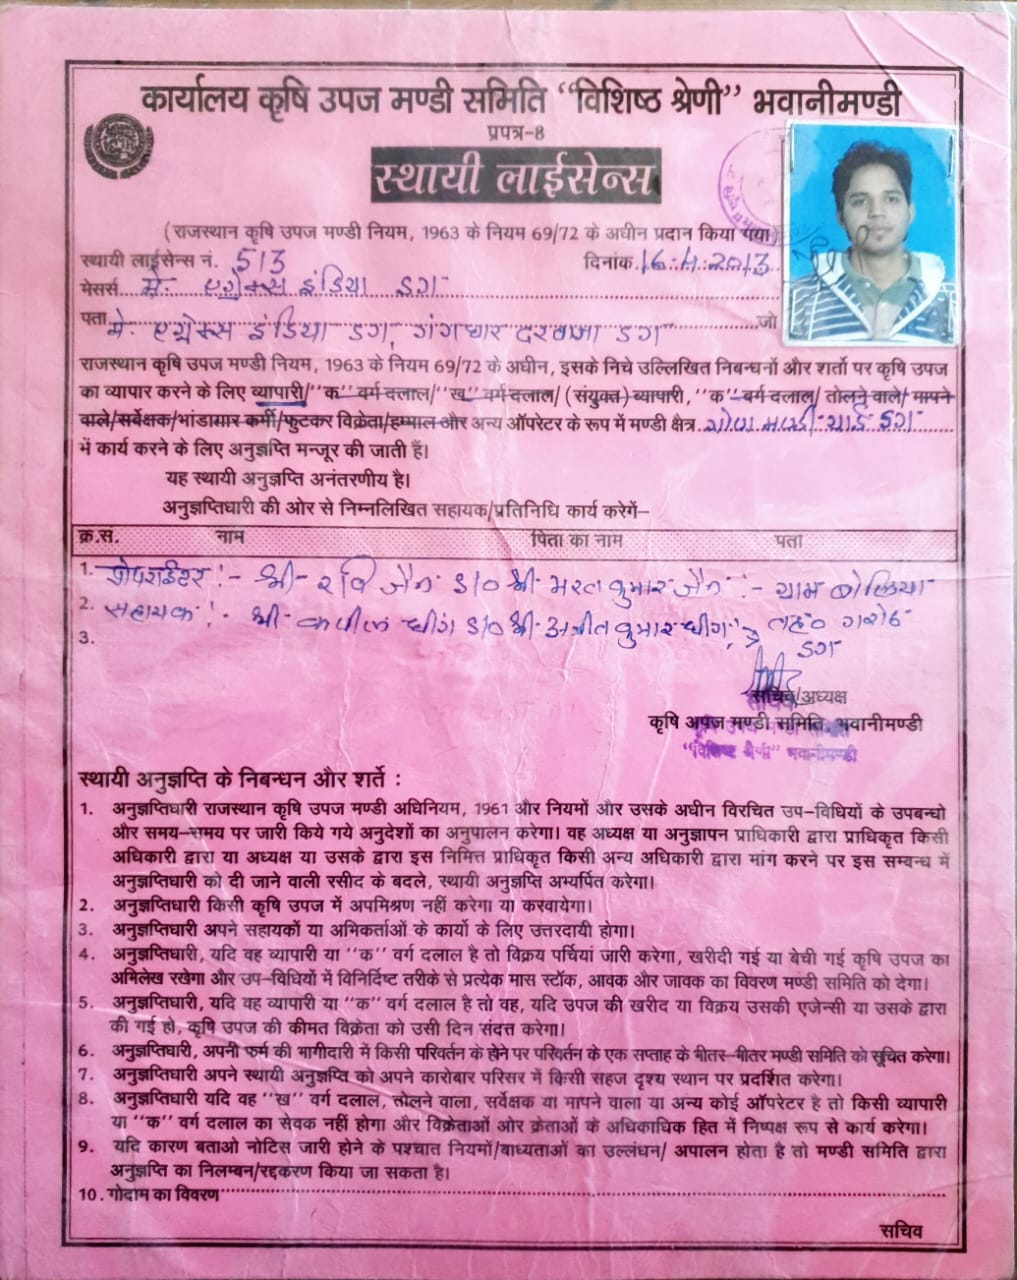 कार्यालय कृषि उपज मण्डी समिति "विशिष्ठ श्रेणी" भवानीमण्डी
प्रपत्र-8
स्थायी लाईसेन्स
(राजस्थान कृषि उपज मण्डी नियम, 1963 के नियम 69/72 के अधीन प्रदान किया गया)
स्थायी लाईसेन्स नं. 513 दिनांक 16.4.2013
मेसर्स मै. एग्रेक्स इंडिया डग
पता मे. एग्रेक्स इंडिया डग, गंगधार दरवाजा डग जो
राजस्थान कृषि उपज मण्डी नियम, 1963 के नियम 69/72 के अधीन, इसके निचे उल्लिखित निबन्धनों और शर्तो पर कृषि उपज
का व्यापार करने के लिए व्यापारी/"क" वर्ग दलाल/"ख" वर्ग दलाल/(संयुक्त) व्यापारी, "क" वर्ग दलाल/ तोलने वाले/ मापने
वाले/सर्वेक्षक/भांडागार कर्मी/फुटकर विक्रेता/हम्माल और अन्य ऑपरेटर के रूप में मण्डी क्षैत्र गौण मण्डी यार्ड डग
में कार्य करने के लिए अनुज्ञप्ति मन्जूर की जाती हैं।
यह स्थायी अनुज्ञप्ति अनंतरणीय है।
अनुज्ञप्तिधारी की ओर से निम्नलिखित सहायक/प्रतिनिधि कार्य करेगें–
क्र.स. नाम पिता का नाम पता
1. प्रोपराईटर :- श्री रवि जैन S/0 श्री भरत कुमार जैन :- ग्राम बोलिया
2. सहायक :- श्री कपील धींग S/0 श्री अजीत कुमार धींग :→ तह0 गरोठ
3. डग
सचिव/अध्यक्ष
सचिव
कृषि अपज मण्डी समिति, भवानीमण्डी
कृषि उपज मण्डी समिति
"विशिष्ट श्रेणी" भवानीमण्डी
स्थायी अनुज्ञप्ति के निबन्धन और शर्ते :
1. अनुज्ञप्तिधारी राजस्थान कृषि उपज मण्डी अधिनियम, 1961 और नियमों और उसके अधीन विरचित उप–विधियों के उपबन्धो
और समय–समय पर जारी किये गये अनुदेशों का अनुपालन करेगा। वह अध्यक्ष या अनुज्ञापन प्राधिकारी द्वारा प्राधिकृत किसी
अधिकारी द्वारा या अध्यक्ष या उसके द्वारा इस निमित्त प्राधिकृत किसी अन्य अधिकारी द्वारा मांग करने पर इस सम्बन्ध में
अनुज्ञप्तिधारी को दी जाने वाली रसीद के बदले, स्थायी अनुज्ञप्ति अभ्यर्पित करेगा।
2. अनुज्ञप्तिधारी किसी कृषि उपज में अपमिश्रण नहीं करेगा या करवायेगा।
3. अनुज्ञप्तिधारी अपने सहायकों या अभिकर्ताओं के कार्यो के लिए उत्तरदायी होगा।
4. अनुज्ञप्तिधारी, यदि वह व्यापारी या "क" वर्ग दलाल है तो विक्रय पर्चियां जारी करेगा, खरीदी गई या बेची गई कृषि उपज का
अभिलेख रखेगा और उप–विधियों में विनिर्दिष्ट तरीके से प्रत्येक मास स्टॉक, आवक और जावक का विवरण मण्डी समिति को देगा।
5. अनुज्ञप्तिधारी, यदि वह व्यापारी या "क" वर्ग दलाल है तो वह, यदि उपज की खरीद या विक्रय उसकी एजेन्सी या उसके द्वारा
की गई हो, कृषि उपज की कीमत विक्रेता को उसी दिन संदत्त करेगा।
6. अनुज्ञप्तिधारी, अपनी फर्म की भागीदारी में किसी परिवर्तन के होने पर परिवर्तन के एक सप्ताह के भीतर–भीतर मण्डी समिति को सूचित करेगा।
7. अनुज्ञप्तिधारी अपने स्थायी अनुज्ञप्ति को अपने कारोबार परिसर में किसी सहज दृश्य स्थान पर प्रदर्शित करेगा।
8. अनुज्ञप्तिधारी यदि वह "ख" वर्ग दलाल, तोलने वाला, सर्वेक्षक या मापने वाला या अन्य कोई ऑपरेटर है तो किसी व्यापारी
या "क" वर्ग दलाल का सेवक नहीं होगा और विक्रेताओं ओर क्रेताओं के अधिकाधिक हित में निष्पक्ष रूप से कार्य करेगा।
9. यदि कारण बताओ नोटिस जारी होने के पश्चात नियमों/बाध्यताओं का उल्लंधन/ अपालन होता है तो मण्डी समिति द्वारा
अनुज्ञप्ति का निलम्बन/रद्दकरण किया जा सकता है।
10. गोदाम का विवरण
सचिव